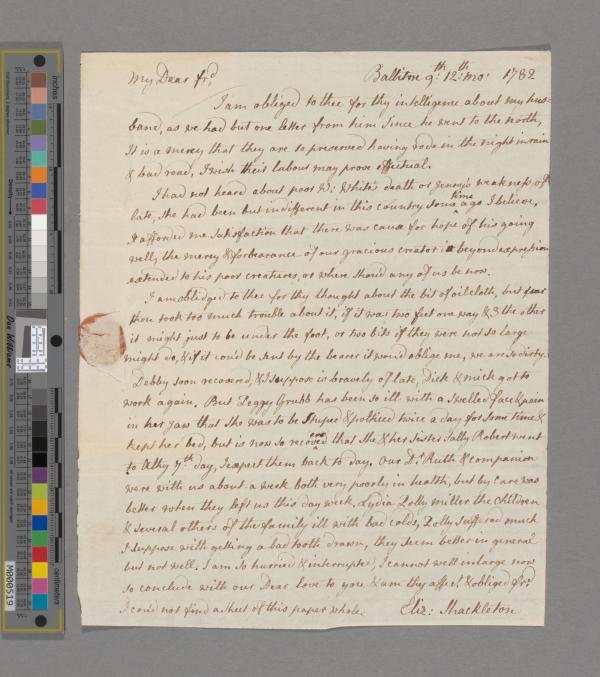 My Dear frd Ballitore 9th: 12th mo: 1782
I am obliged to thee for thy intelligence about my hus=
band, as we had but one letter from him since he went to the north,
It is a mercy that they are so preserved having rode in the night in rain
& bad road, I wish their labour may prove effectual.
I had not heard about poor W: White's death or Jenny's weakness of
late, she had been but indifferent in this country some time ago I believe,
It afforded me satisfaction that there was cause for hope of his going
well, the mercy & forbearance of our gracious creator is beyond expression
extended to his poor creatures, or where should any of us be now.
I am obliedged to thee for thy thought about the bit of oilcloth, but fear
thou took too much trouble about it, if it was two feet one way & 3 the other
it might just to be under the foot, or two bits if they were not so large
might do, & if it coud be sent by the bearer it would oblige me, we are so dirty.
Debby soon recovered, & I suppose is bravely of late, Dick & mick got to
work again. But Peggy Grubb has been so ill with a swelled face & pain
in her jaw that she was to be stuped & polticed twice a day for some time &
kept her bed, but is now so recovered that she & her sister Sally Robert went
to Athy 7th day, I expect them back to day. Our Dr. Ruth & companion
were with us about a week both very poorly in health, but by care was
better when they left us this day week, Lydia Dolly miller the Children
& several others of the family ill with bad colds, Dolly suffered much
I suppose with getting a bad tooth drawn, they seem better in general
but not well, I am so hurried & interrupted, I cannot well enlarge now
so conclude with our Dear love to you & am thy affect. & obliged frd
I coud not find a sheet of this paper whole. Eliz: Shackleton
inches
centimeters
Don Williams
M000519